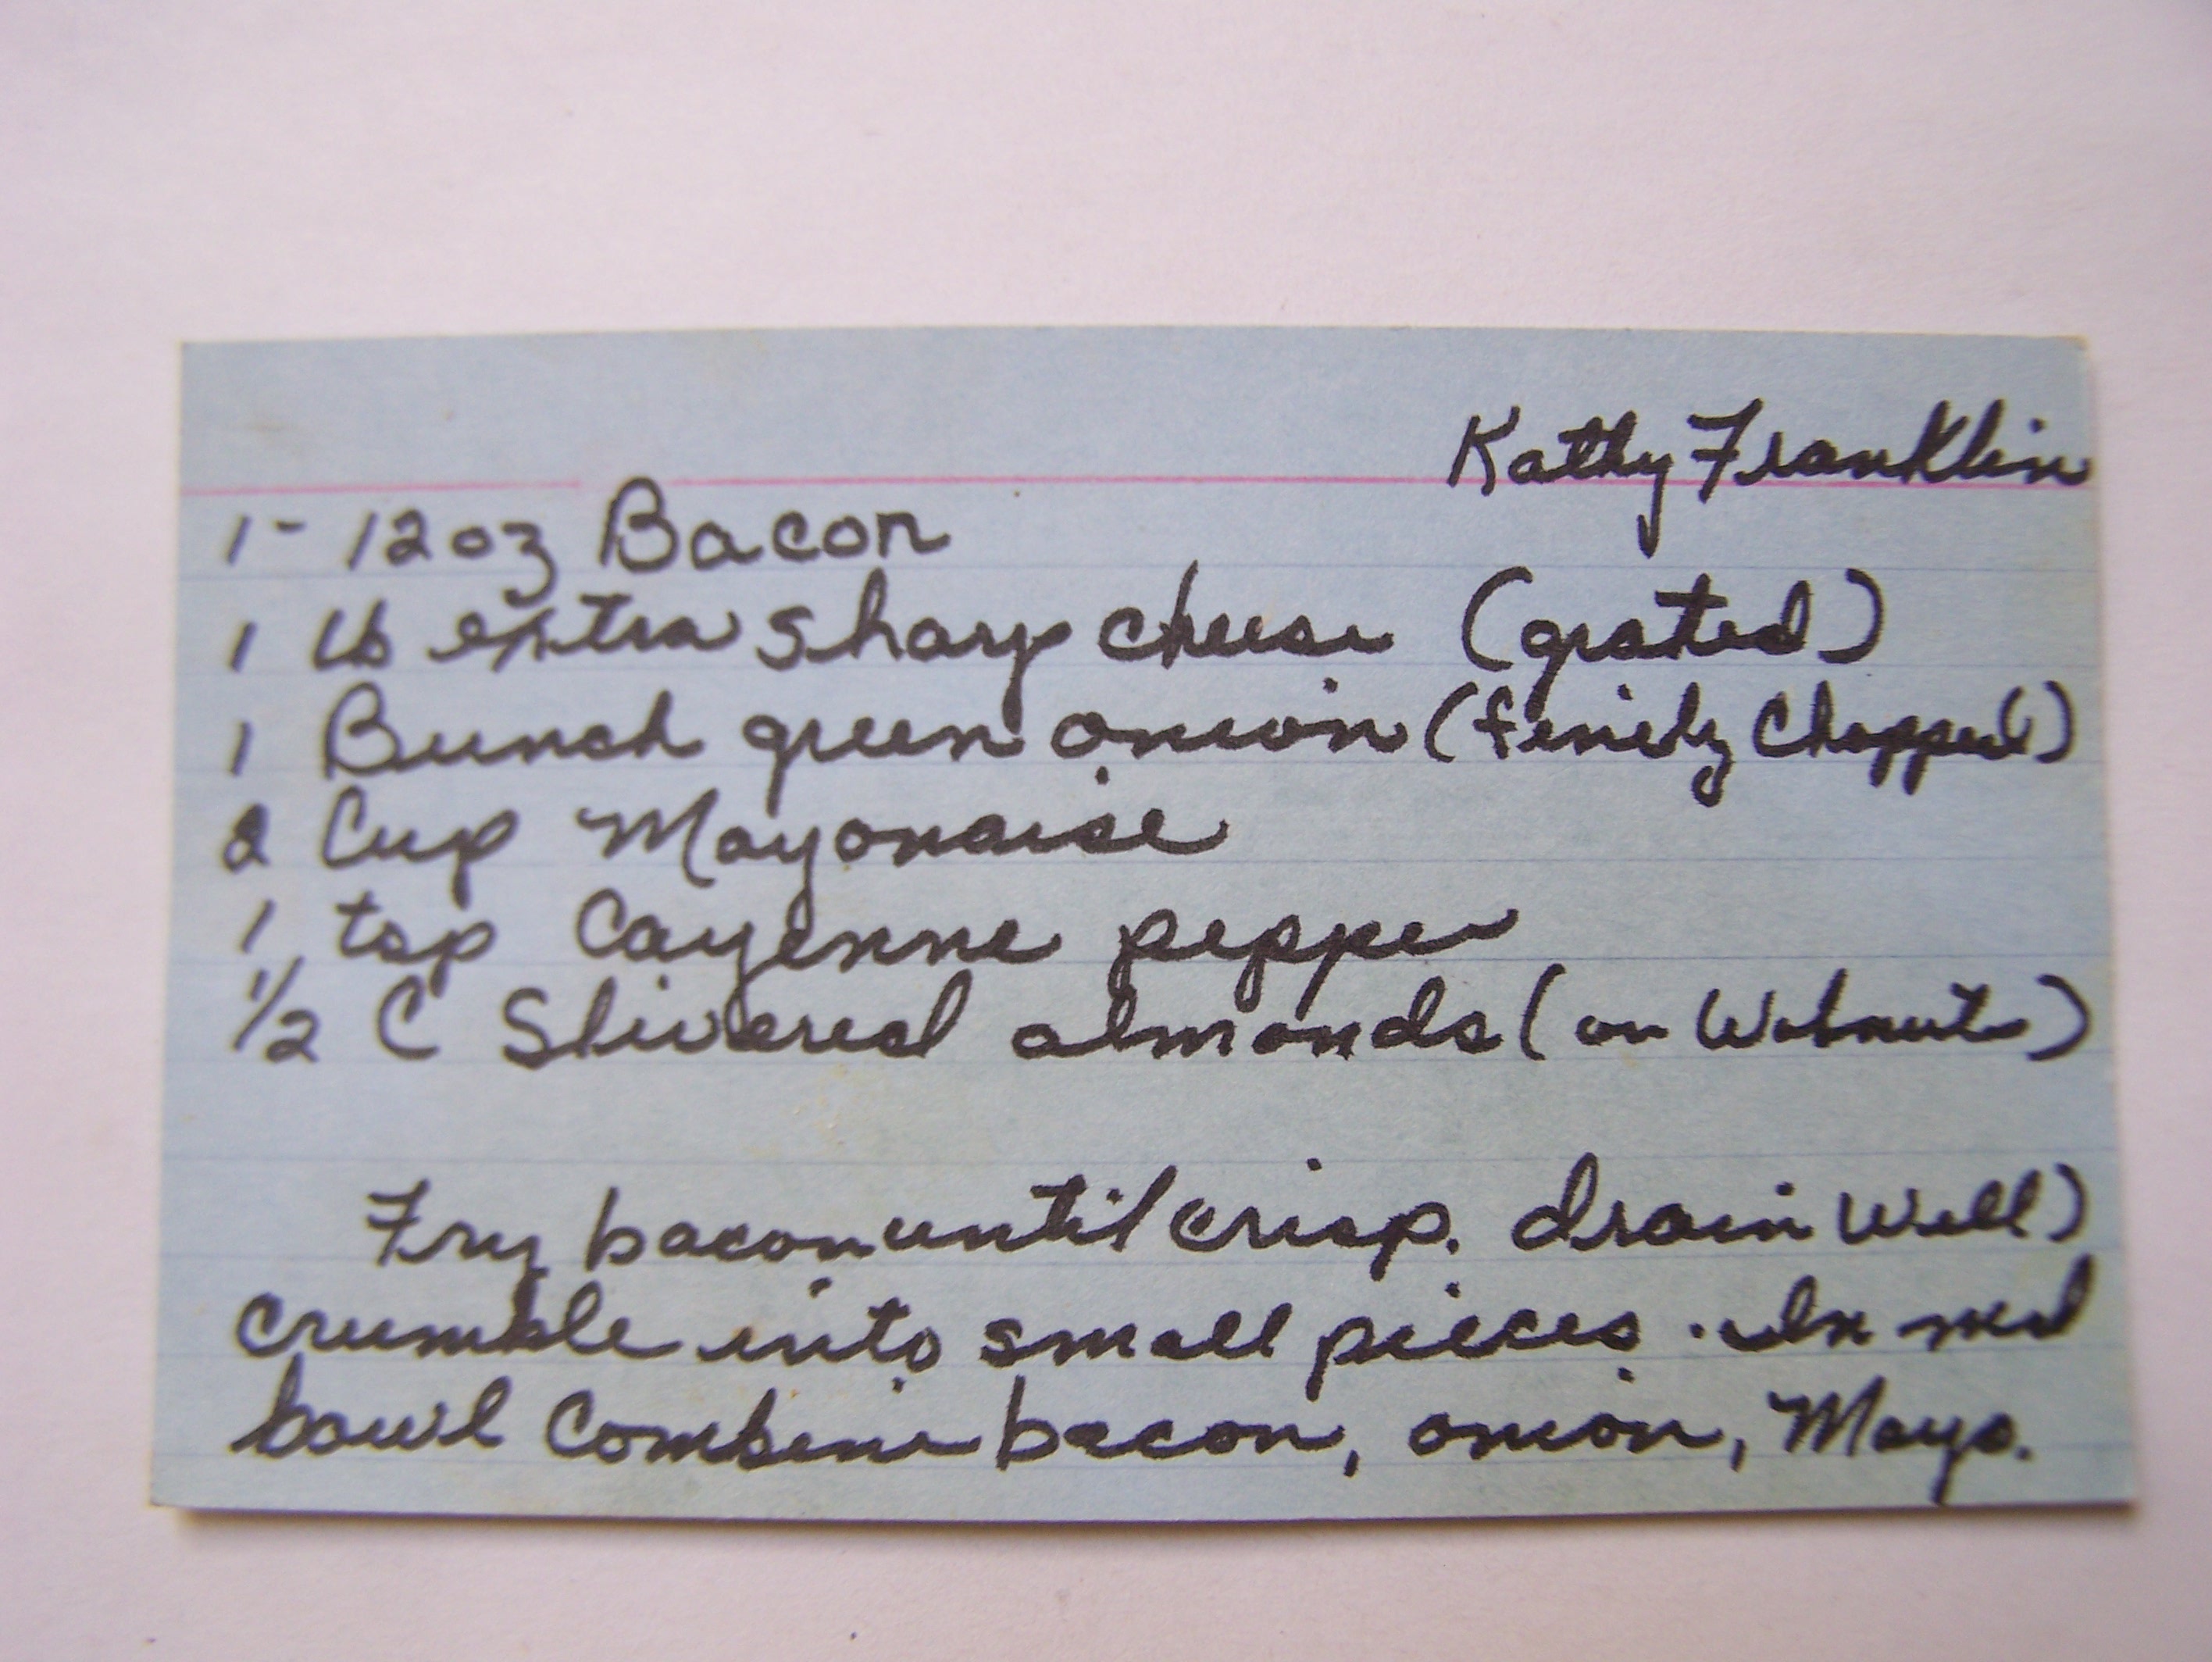 Kathy Franklin
1 - 12 oz Bacon
1 lb extra sharp cheese (grated)
1 Bunch green onion (finely Chopped)
2 Cup Mayonaise
1 tsp Cayenne pepper
1/2 C Slivered almonds (or Walnuts)
Fry bacon until crisp. drain well)
crumble into small pieces. In med
bowl Combine bacon, onion, Mayo.